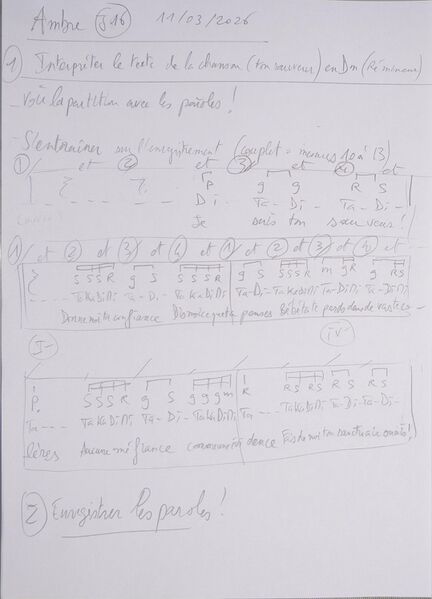 Ambre J16 11/03/2026
1 Interpréter le texte de la chanson (ton sauveur) en Dm (Ré mineur)
- Voir la partition avec les paroles !
- S'entraîner sur l'enregistrement (couplet = mesures 10 à 13)
1 et 2 et 3 et 4 et
P g g R S
Di Ta - Di - Ta - Di -
Je suis ton sauveur !
1 et 2 et 3 et 4 et 1 et 2 et 3 et 4 et
S S S R g S S S S R g S S S R m g R g R S
Ta Ka Di Mi Ta - Di - Ta Ka Di Mi Ta - Di - Ta Ka Di Mi Ta - Di Mi Ta - Di Mi
Donne moi ta confiance Dis moi ce que tu penses perds dans de vastes -
I - IV -
P S S S R g S g g g m R R S R S R S R S
Ta - - - Ta Ka Di Mi Ta - Di - Ta Ka Di Mi Ta - - - Ta Ka Di Mi Ta - Di - Ta - Di -
lères Aucune méfiance Fais de moi ton sanctuaire
2 Enregistrer les paroles !